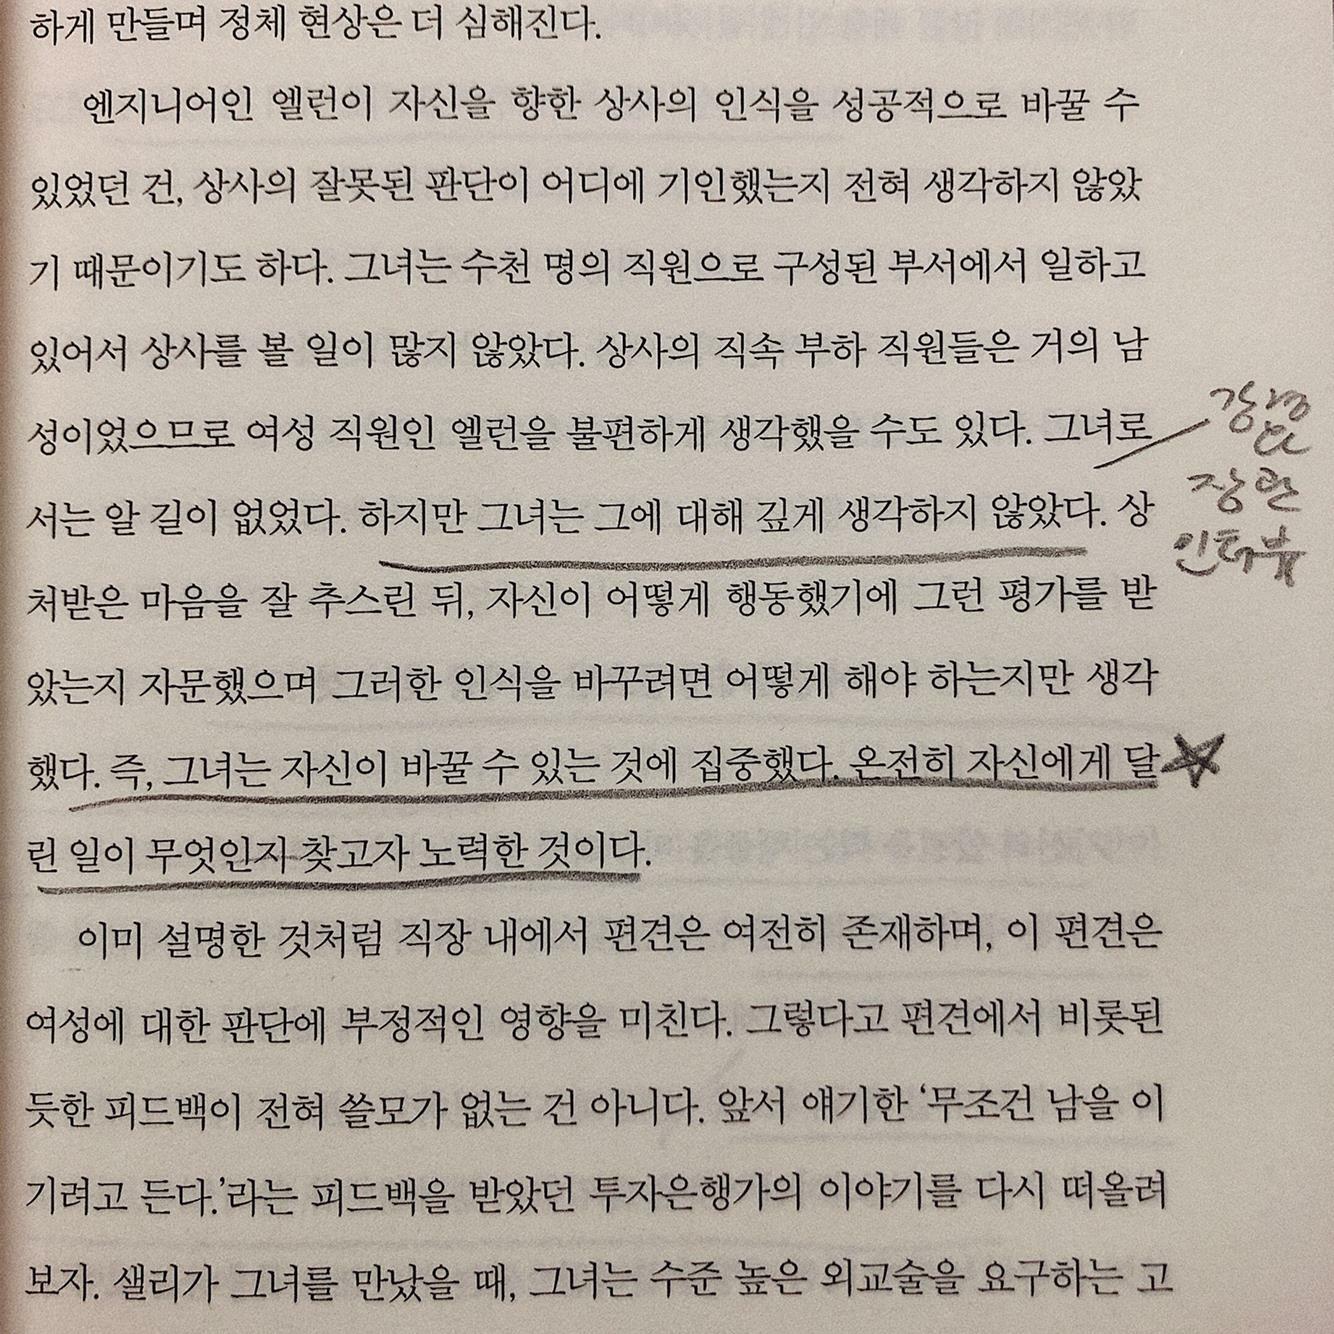 하게 만들며 정체 현상은 더 심해진다.
엔지니어인 엘런이 자신을 향한 상사의 인식을 성공적으로 바꿀 수
있었던 건, 상사의 잘못된 판단이 어디에 기인했는지 전혀 생각하지 않았
기 때문이기도 하다. 그녀는 수천 명의 직원으로 구성된 부서에서 일하고
있어서 상사를 볼 일이 많지 않았다. 상사의 직속 부하 직원들은 거의 남
성이었으므로 여성 직원인 엘런을 불편하게 생각했을 수도 있다. 그녀로
서는 알 길이 없었다. 하지만 그녀는 그에 대해 깊게 생각하지 않았다. 상
처받은 마음을 잘 추스린 뒤, 자신이 어떻게 행동했기에 그런 평가를 받
았는지 자문했으며 그러한 인식을 바꾸려면 어떻게 해야 하는지만 생각
했다. 즉, 그녀는 자신이 바꿀 수 있는 것에 집중했다. 온전히 자신에게 달
린 일이 무엇인지 찾고자 노력한 것이다.
이미 설명한 것처럼 직장 내에서 편견은 여전히 존재하며, 이 편견은
여성에 대한 판단에 부정적인 영향을 미친다. 그렇다고 편견에서 비롯된
듯한 피드백이 전혀 쓸모가 없는 건 아니다. 앞서 얘기한 ‘무조건 남을 이
기려고 든다.’라는 피드백을 받았던 투자은행가의 이야기를 다시 떠올려
보자. 샐리가 그녀를 만났을 때, 그녀는 수준 높은 외교술을 요구하는 고
장관
인터뷰